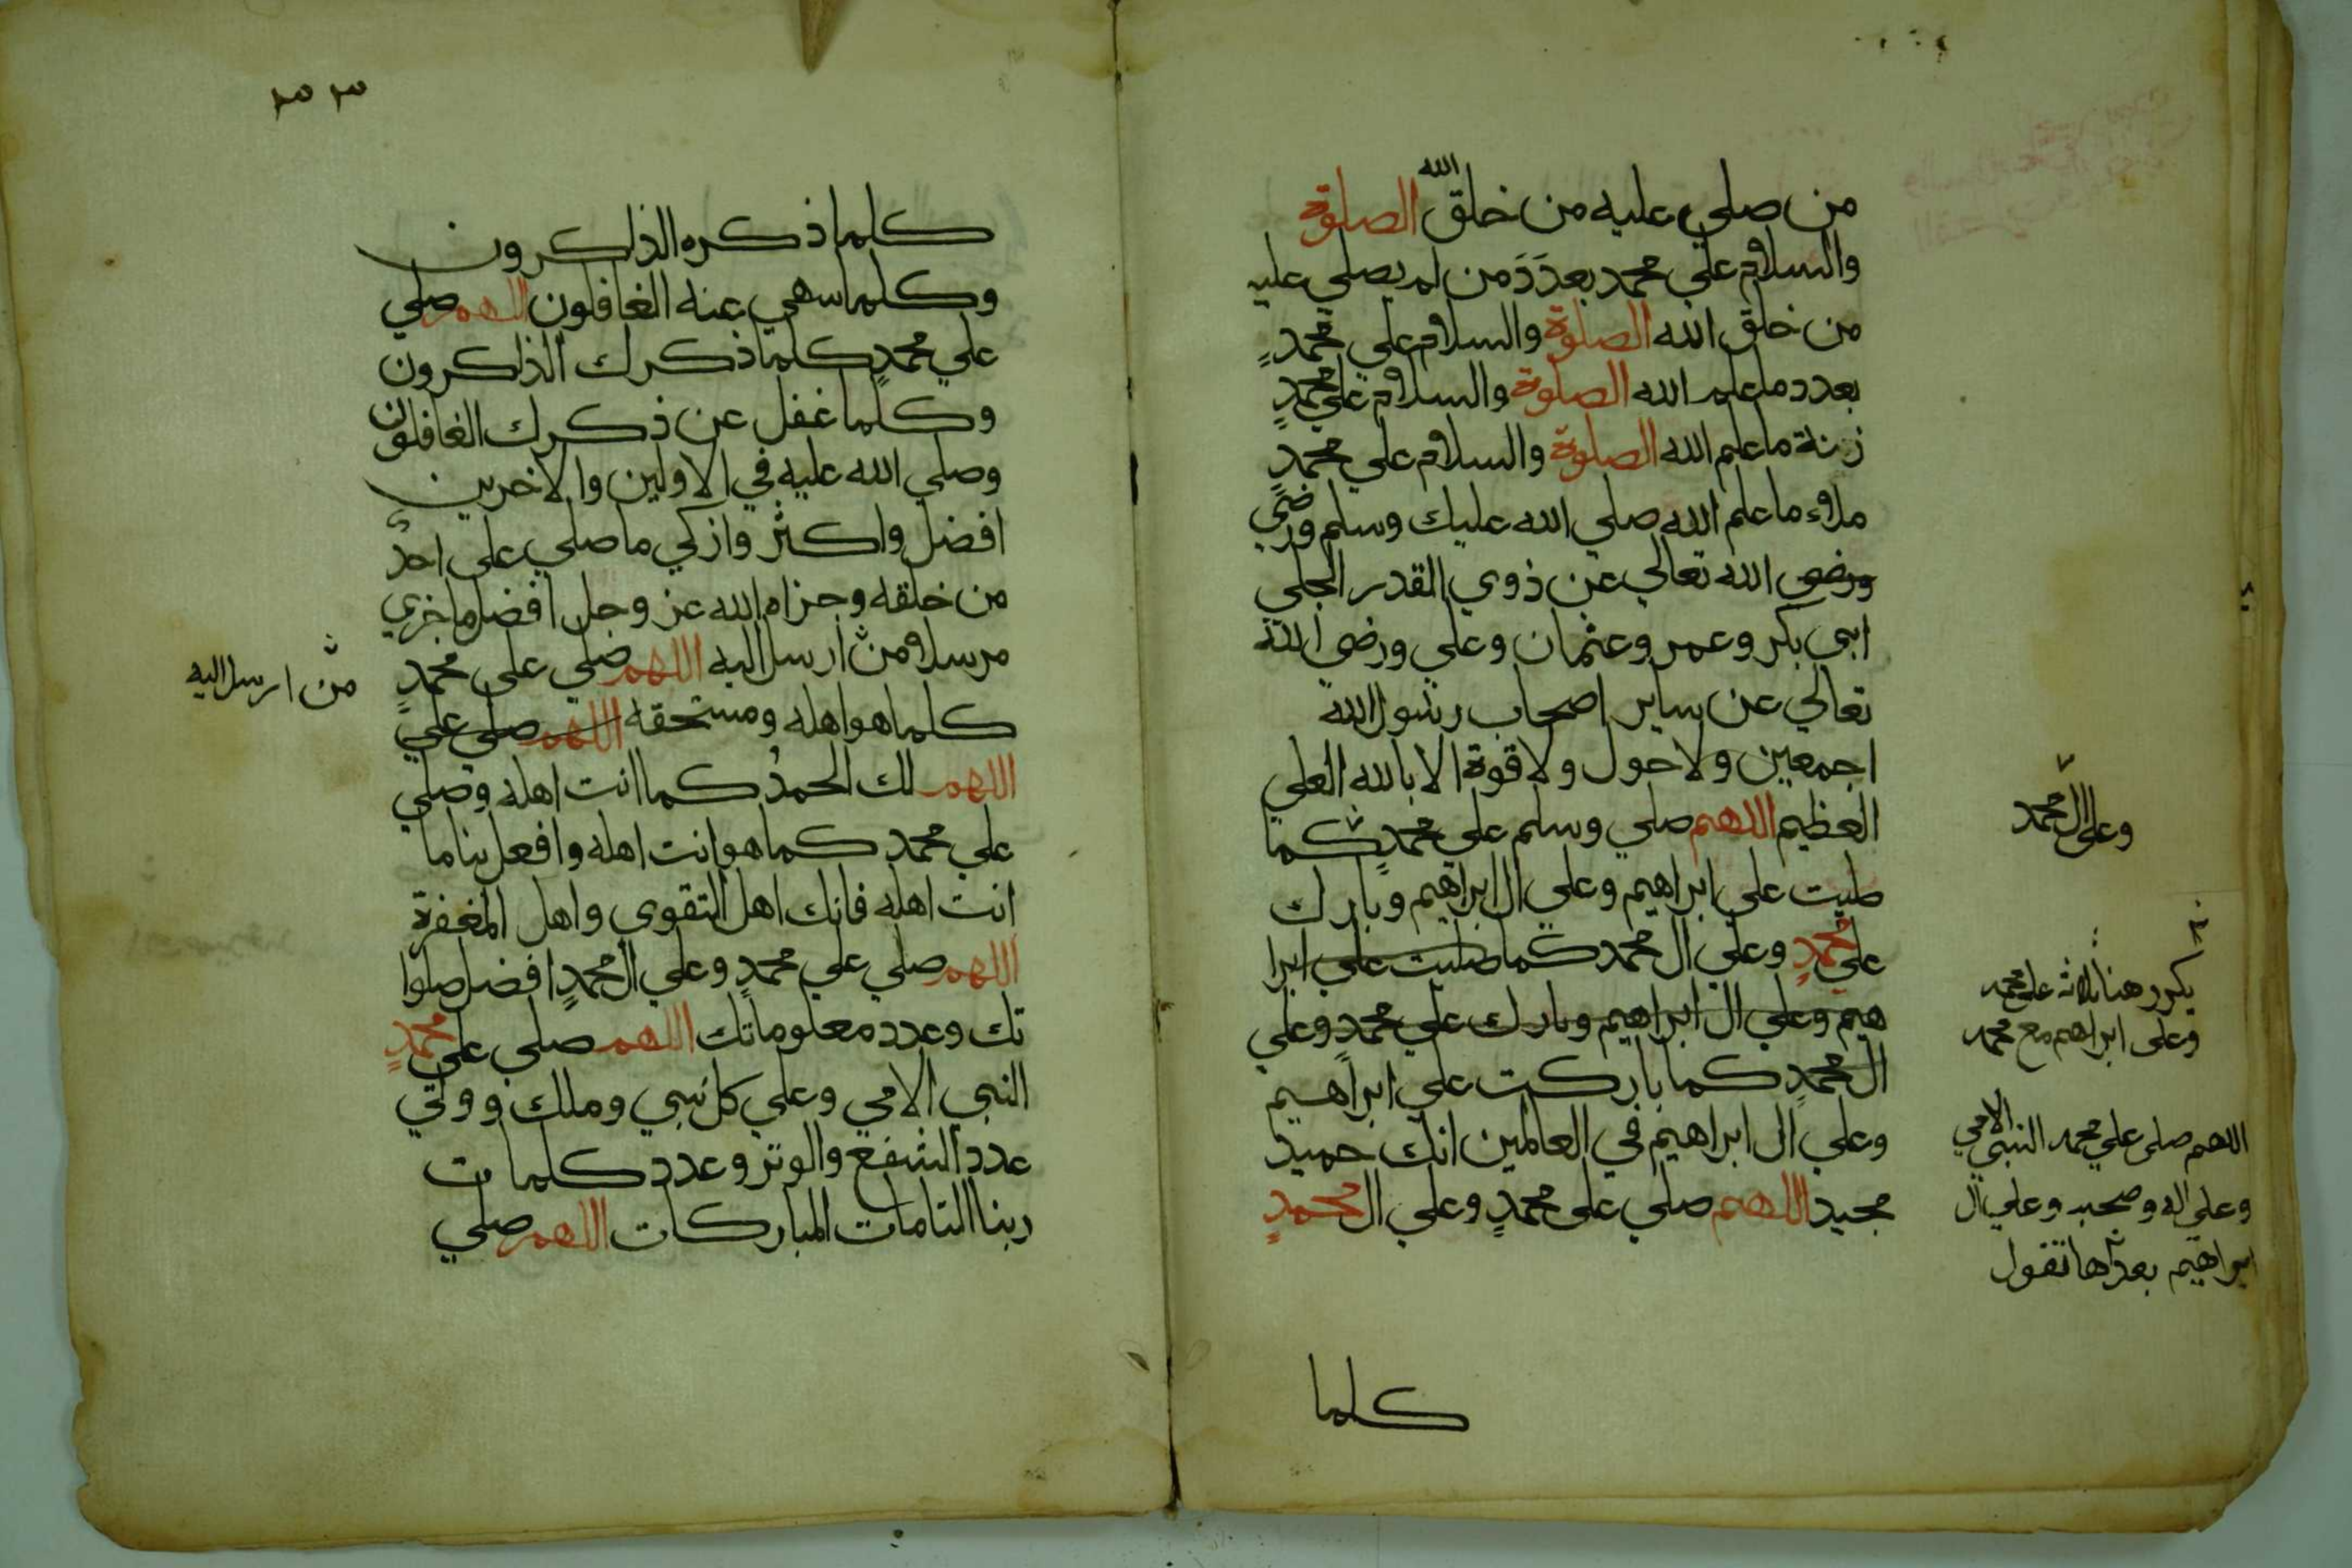 من صلي عليه من خلق الله الصلوة
والسلام علي محمد بعدد من لم يصلي عليه
من خلق الله الصلوة والسلام علي محمدٍ
بعدد ما علم الله الصلوة والسلام علي محمدٍ
زنة ما علم الله الصلوة والسلام علي محمدٍ
ملاء ما علم الله صلي الله عليك وسلم ورضي
ورضي الله تعالي عن ذوي القدر الجلي
ابي بكر وعمر وعثمان وعلي ورضي الله
تعالي عن ساير اصحاب رسول الله
اجمعين ولا حول ولا قوة الا بالله العلي
العظيم اللهم صلي وسلم علي محمدٍ كما
صليت علي ابراهيم وعلي ال ابراهيم وبارك
علي محمدٍ وعلي ال محمد كما صليت علي ابرا
هيم وعلي ال ابراهيم وبارك علي محمدٍ وعلي
ال محمدٍ كما باركت علي ابراهيم
وعلي ال ابراهيم في العالمين انك حميد
مجيد اللهم صلي علي محمدٍ وعلي ال محمدٍ
وعلي ال محمد
يكرر هنا ثلاثة علي محمد
وعلي ابراهيم مع محمد
اللهم صلي علي محمد النبي الامي
وعلي اله وصحبه وعلي ال
ابراهيم بعدها تقول
كلما
كلما ذكره الذاكرون
وكلما سهي عنه الغافلون اللهم صلي
علي محمدٍ كلما ذكرك الذاكرون
وكلما غفل عن ذكرك الغافلون
وصلي الله عليه في الاولين والاخرين
افضل واكثر وازكي ما صلي علي احدٍ
من خلقه وجزاه الله عز وجل افضل ما جزي
مرسلا من ارسل اليه اللهم صلي علي محمدٍ
من ارسل اليه
كلما هو اهله ومستحقه اللهم صلي علي
اللهم لك الحمدُ كما انت اهله وصلي
علي محمد كما هو انت اهله وافعل بنا ما
انت اهله فانك اهل التقوي واهل المغفرة
اللهم صلي علي محمدٍ وعلي ال محمدٍ افضل صلوا
تك وعدد معلوماتك اللهم صلي علي محمدٍ
النبي الامي وعلي كل نبي وملك وولي
عدد الشفع والوتر وعدد كلمات
ربنا التامات المباركات اللهم صلي